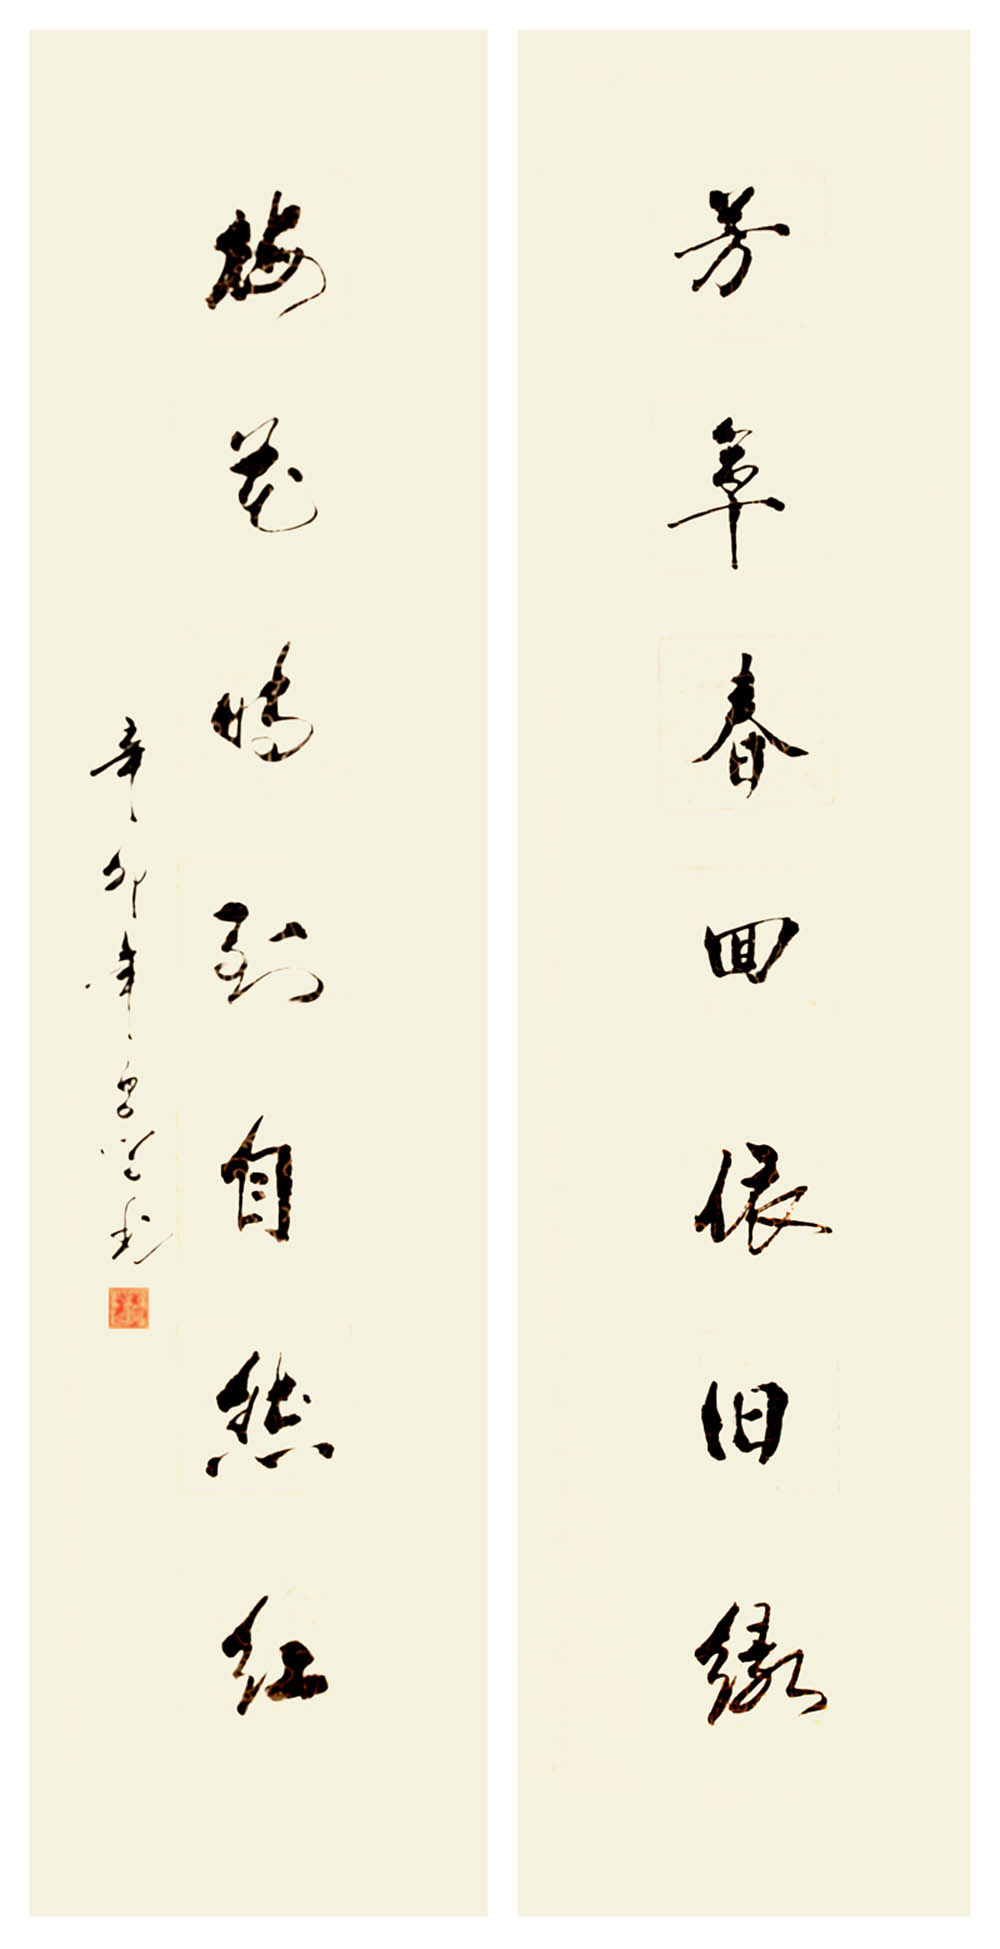 芳草春回依旧绿
梅花时到自然红
辛卯年